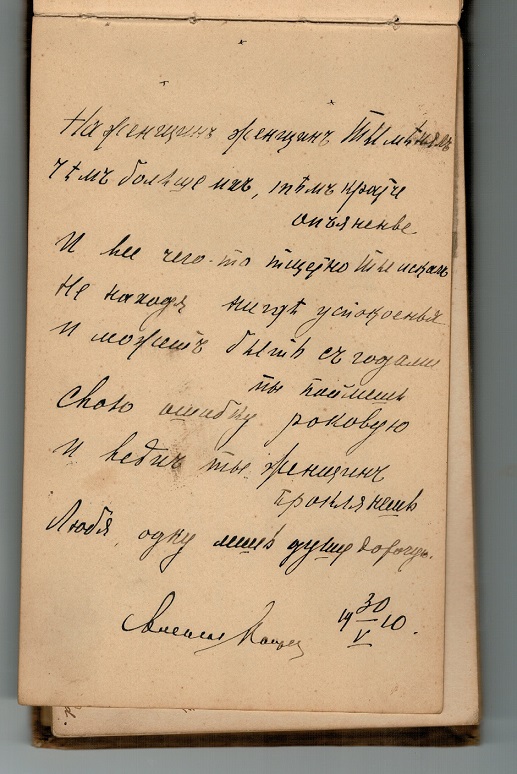 На женщинъ женщинъ ты мѣнялъ
Чѣмъ больше ихъ, тѣмъ краче
опъяненье
И все чего-то тщетно ты искалъ
Не находя нигдѣ успокоенья
И можетъ быть съ годами
ты поймешь
Свою ошибку роковую
И ты женщинъ
проклянешь
Любя одну лишь душу дорогую.
19 30/V 10.